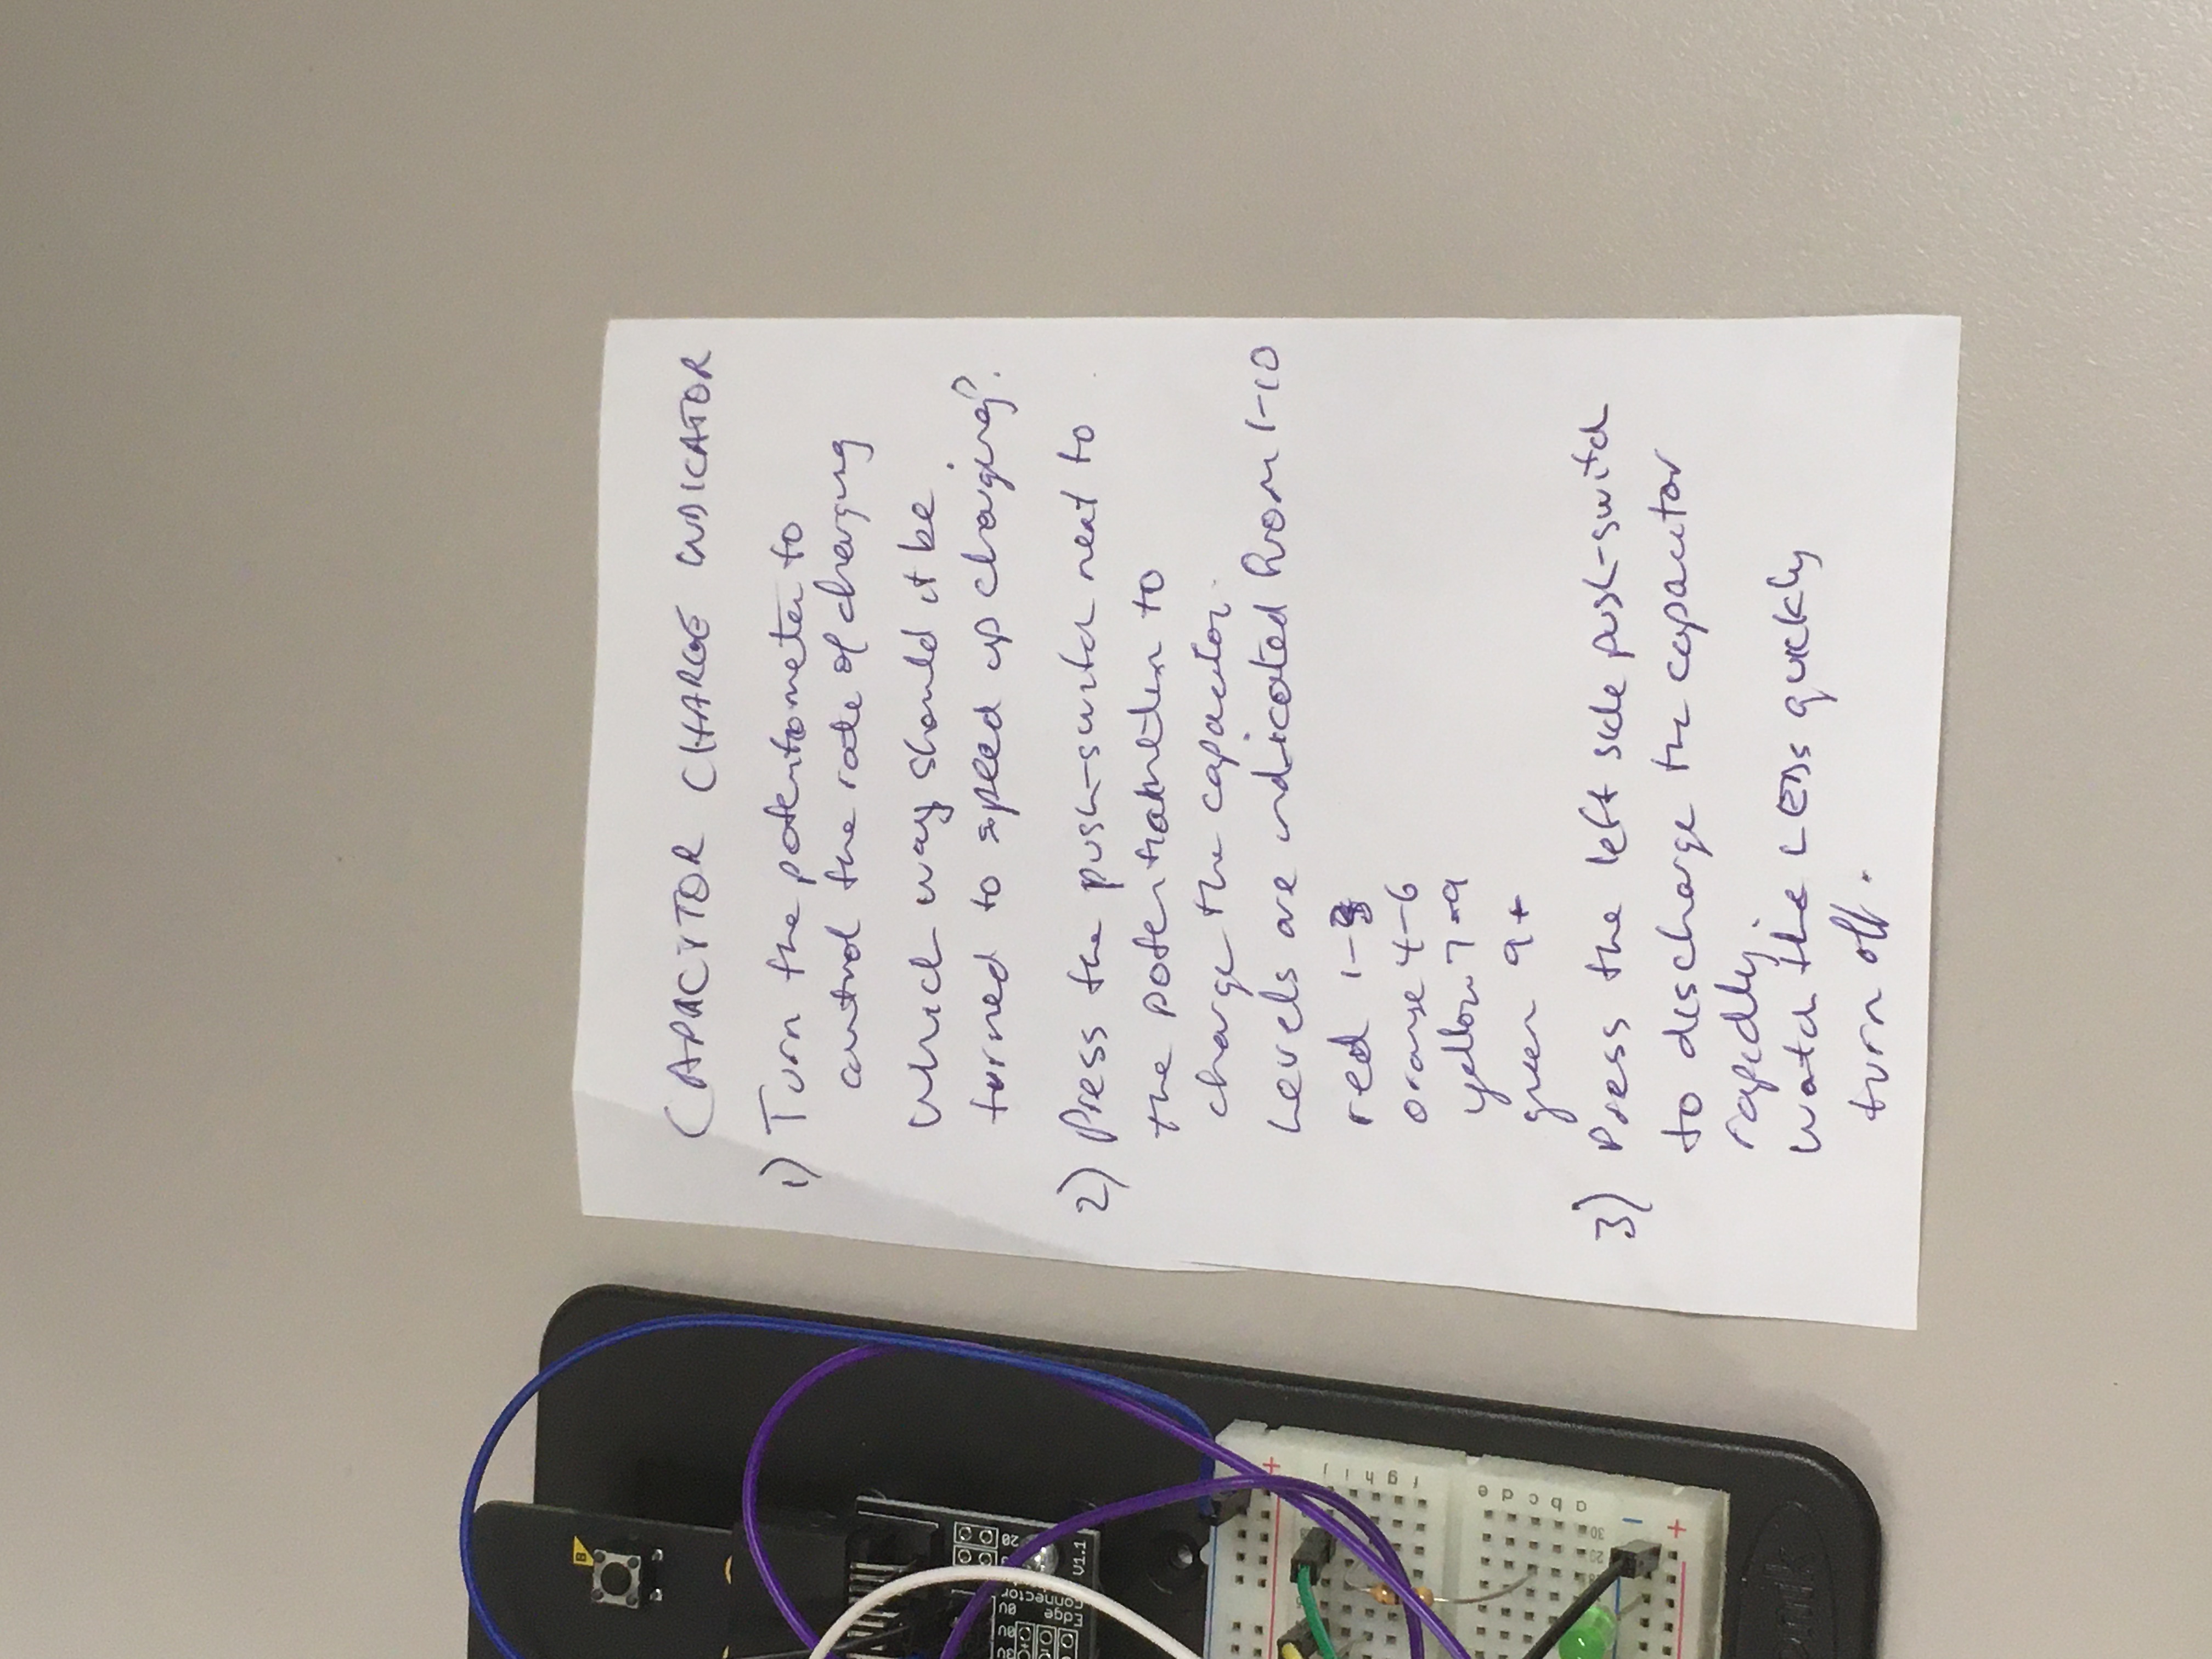 CAPACITOR CHARGE INDICATOR
1) Turn the potentiometer to
control the rate of charging
Which way should it be
turned to speed up charging?
2) Press the push-switch next to
the potentiometer to
charge the capacitor.
Levels are indicated from 1-10
red 1-3
orange 4-6
yellow 7-9
green 9+
3) Press the left side push-switch
to discharge the capacitor
rapidly.
Watch the LEDs quickly
turn off.
B
3V
0V
0V
20
Edge
Connector
V1.1
+
j
i
h
g
f
e
d
c
b
a
30
-
+